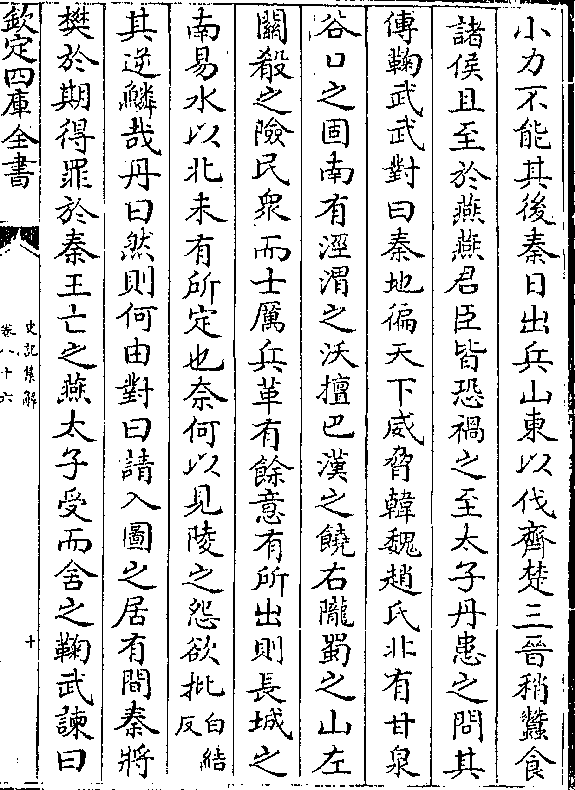 小力不能其後秦日出兵山東以伐齊楚三晉稍蠶食
諸侯且至於燕燕君臣皆恐禍之至太子丹患之問其
傅鞠武武對曰秦地徧天下威脅韓魏趙氏北有甘泉
谷口之固南有涇渭之沃擅巴漢之饒右隴蜀之山左
關殽之險民衆而士厲兵革有餘意有所出則長城之
南易水以北未有所定也奈何以見陵之怨欲批白結反
其逆鱗哉丹曰然則何由對曰請入圖之居有間秦將
樊於期得罪於秦王亡之燕太子受而舍之鞠武諫曰
欽定四庫全書
史記集解
卷八十六
十